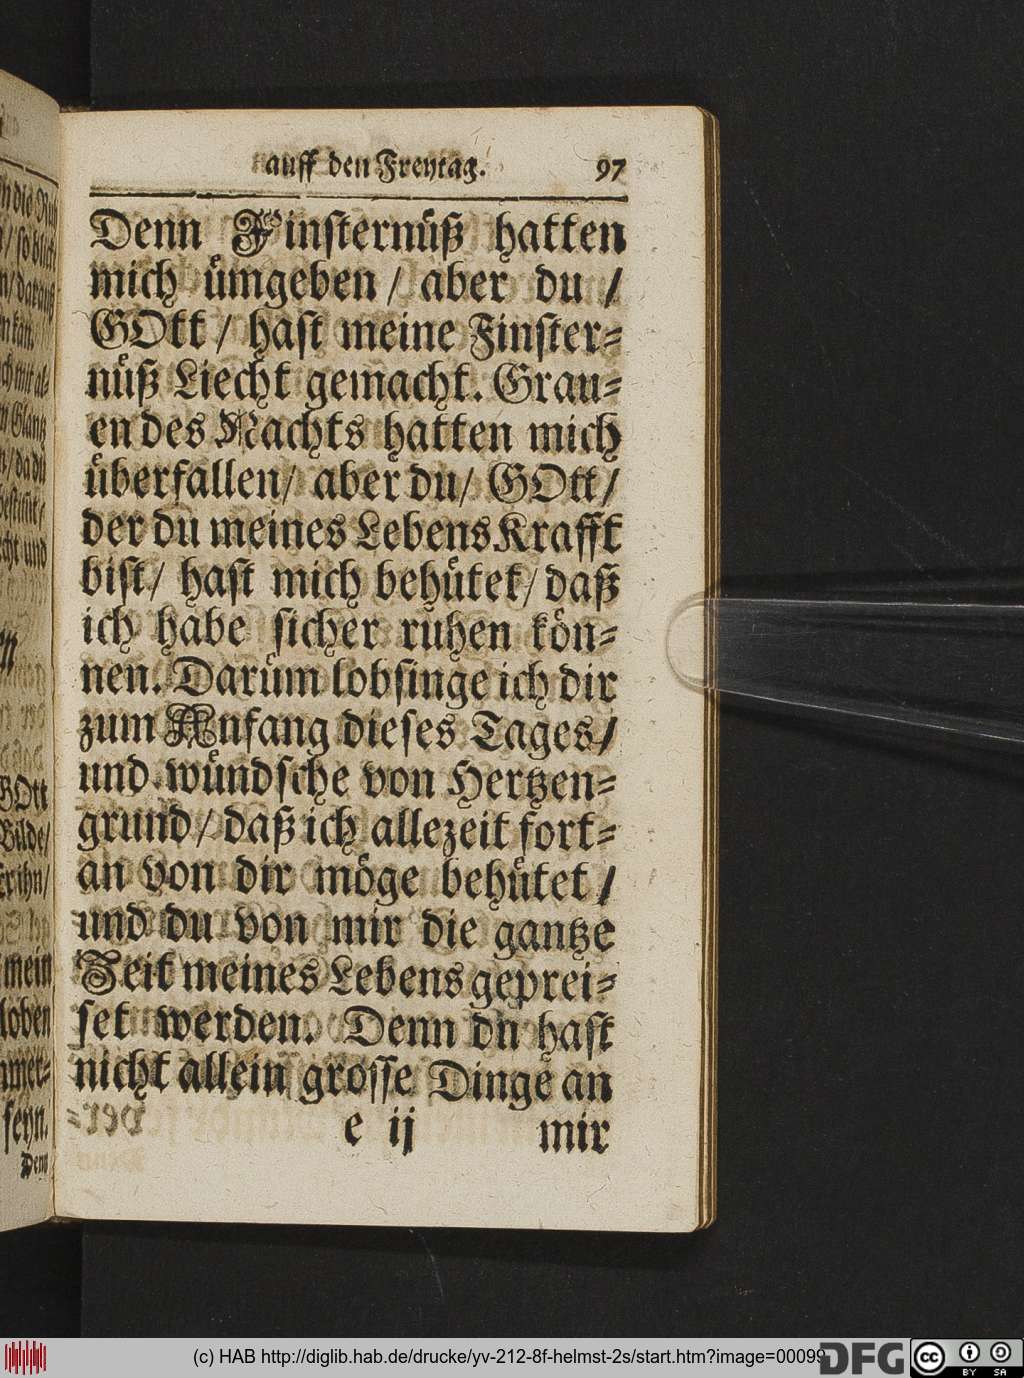 auff den Freytag. 97
Denn Finsternüß hatten
mich ümgeben / aber du /
GOtt / hast meine Finster-
nüß Liecht gemacht. Grau-
en des Nachts hatten mich
überfallen / aber du / GOtt /
der du meines Lebens Krafft
bist / hast mich behütet / daß
ich habe sicher ruhen kön-
nen. Darüm lobsinge ich dir
zum Anfang dieses Tages /
und wündsche von Hertzen-
grund / daß ich allezeit fort-
an von dir möge behütet /
und du von mir die gantze
Zeit meines Lebens geprei-
set werden. Denn du hast
nicht allein grosse Dinge an
e ij mir
GOtt
Bilde /
mein
loben
seyn.
Denn
(c) HAB http://diglib.hab.de/drucke/yv-212-8f-helmst-2s/start.htm?image=00099
DFG
cc BY SA